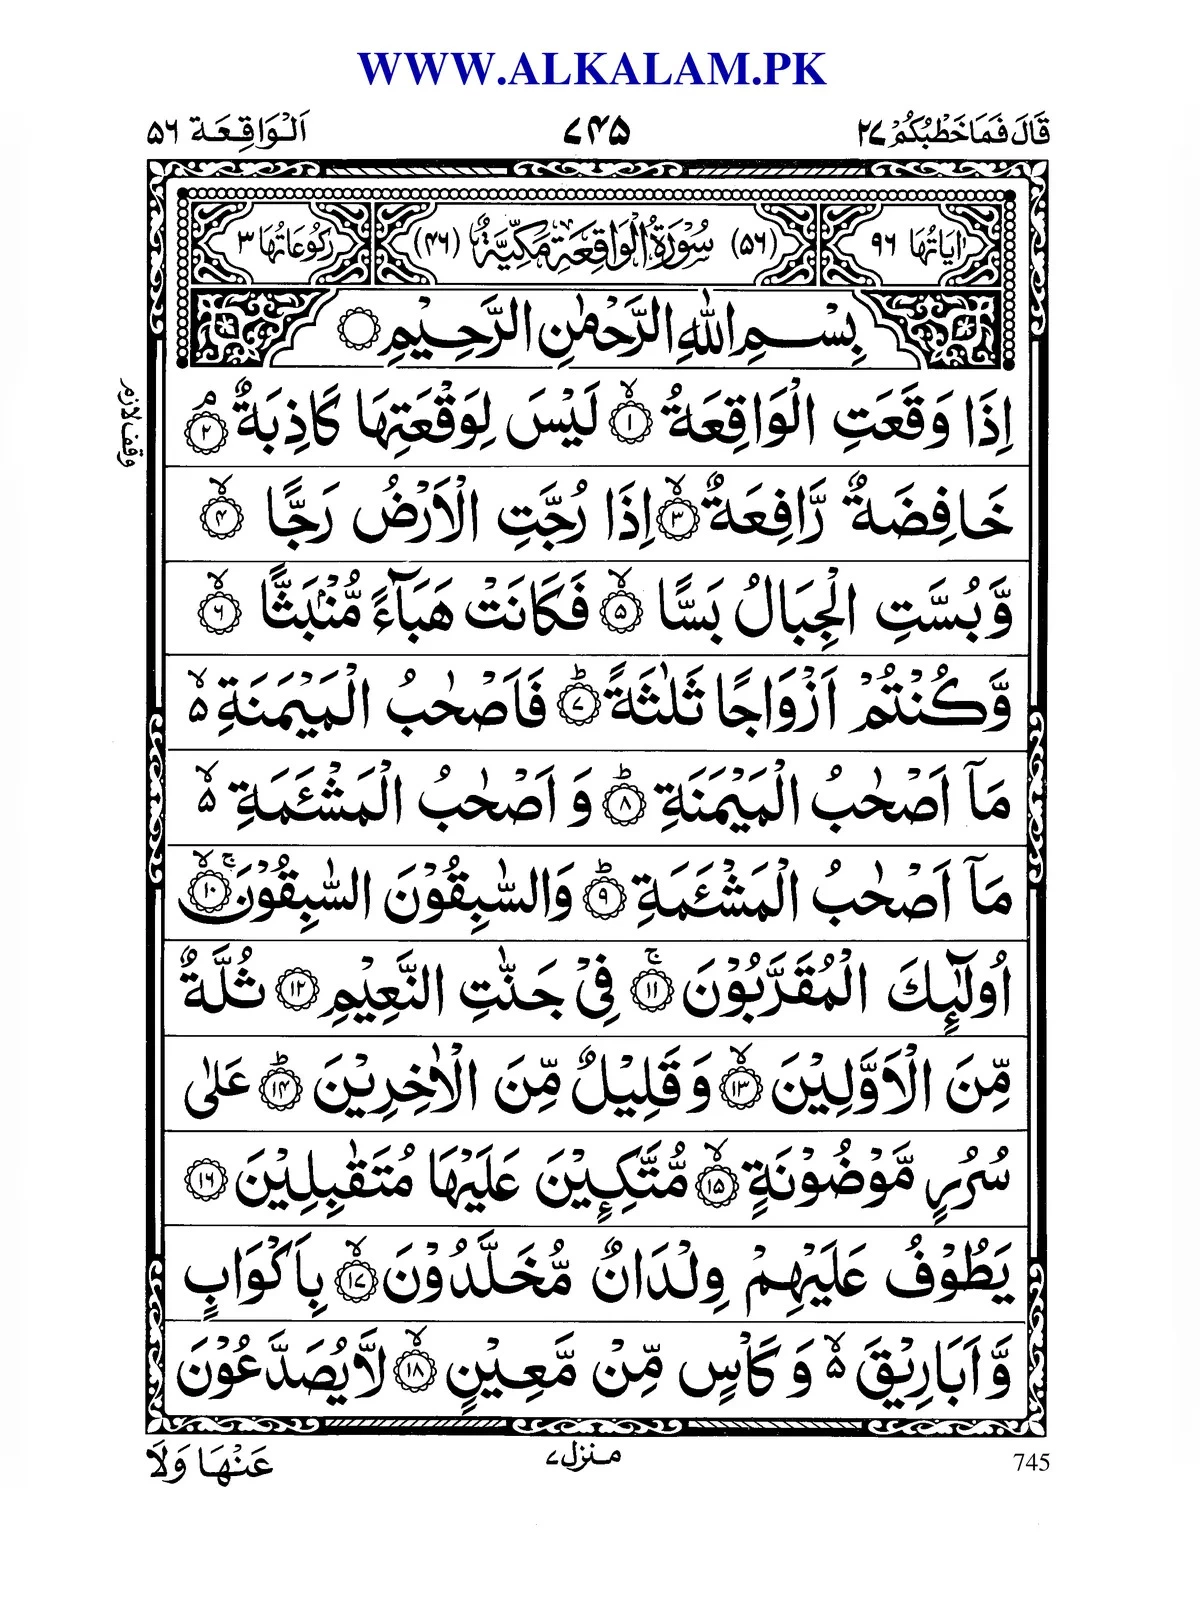 WWW.ALKALAM.PK
قَالَ فَمَا خَطْبُكُمْ ۲۷
۷۴۵
اَلْوَاقِعَة ۵۶
اٰيَاتُهَا ۹۶
(۵۶) سُوْرَةُ الْوَاقِعَةِ مَكِّيَّةٌ (۴۶)
رُكُوْعَاتُهَا ۳
بِسْمِ اللّٰهِ الرَّحْمٰنِ الرَّحِيْمِ ۝
اِذَا وَقَعَتِ الْوَاقِعَةُ ۙ‏﴿۱﴾ لَيْسَ لِوَقْعَتِهَا كَاذِبَةٌ ۘ‏﴿۲﴾
وقف لازم
خَافِضَةٌ رَّافِعَةٌ ۙ‏﴿۳﴾ اِذَا رُجَّتِ الْاَرْضُ رَجًّا ۙ‏﴿۴﴾
وَّبُسَّتِ الْجِبَالُ بَسًّا ۙ‏﴿۵﴾ فَكَانَتْ هَبَآءً مُّنْۢبَثًّا ۙ‏﴿۶﴾
وَّكُنْتُمْ اَزْوَاجًا ثَلٰثَةً ؕ‏﴿۷﴾ فَاَصْحٰبُ الْمَيْمَنَةِ ۙ۵
مَاۤ اَصْحٰبُ الْمَيْمَنَةِ ؕ‏﴿۸﴾ وَ اَصْحٰبُ الْمَشْـَٔمَةِ ۙ۵
مَاۤ اَصْحٰبُ الْمَشْـَٔمَةِ ؕ‏﴿۹﴾ وَالسّٰبِقُوْنَ السّٰبِقُوْنَ ۚۙ‏﴿۱۰﴾
اُولٰٓئِكَ الْمُقَرَّبُوْنَ ۚ‏﴿۱۱﴾ فِيْ جَنّٰتِ النَّعِيْمِ ‏﴿۱۲﴾ ثُلَّةٌ
مِّنَ الْاَوَّلِيْنَ ۙ‏﴿۱۳﴾ وَ قَلِيْلٌ مِّنَ الْاٰخِرِيْنَ ؕ‏﴿۱۴﴾ عَلٰى
سُرُرٍ مَّوْضُوْنَةٍ ۙ‏﴿۱۵﴾ مُّتَّكِـِٕيْنَ عَلَيْهَا مُتَقٰبِلِيْنَ ‏﴿۱۶﴾
يَطُوْفُ عَلَيْهِمْ وِلْدَانٌ مُّخَلَّدُوْنَ ۙ‏﴿۱۷﴾ بِاَكْوَابٍ
وَّ اَبَارِيْقَ ۙ۵ وَ كَاْسٍ مِّنْ مَّعِيْنٍ ۙ‏﴿۱۸﴾ لَّا يُصَدَّعُوْنَ
منزل ۷
عَنْهَا وَلَا
745